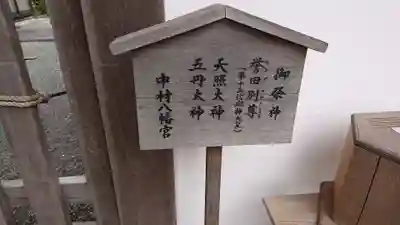 御祭神
誉田別尊
(第十五代応神天皇)
天照大神
五丹大神
中村八幡宮